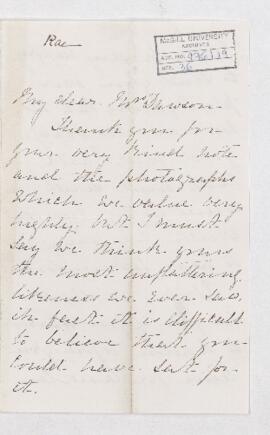 Rae
McGILL UNIVERSITY
ARCHIVES
ACC. NO.
REF.
My dear Mrs Dawson
Thank you for
your very kind note
and the photographs
which we value very
highly. but I must
say we think yours
the most unflattering
likeness we ever saw,
in fact it is difficult
to believe that you
could have sat for
it.